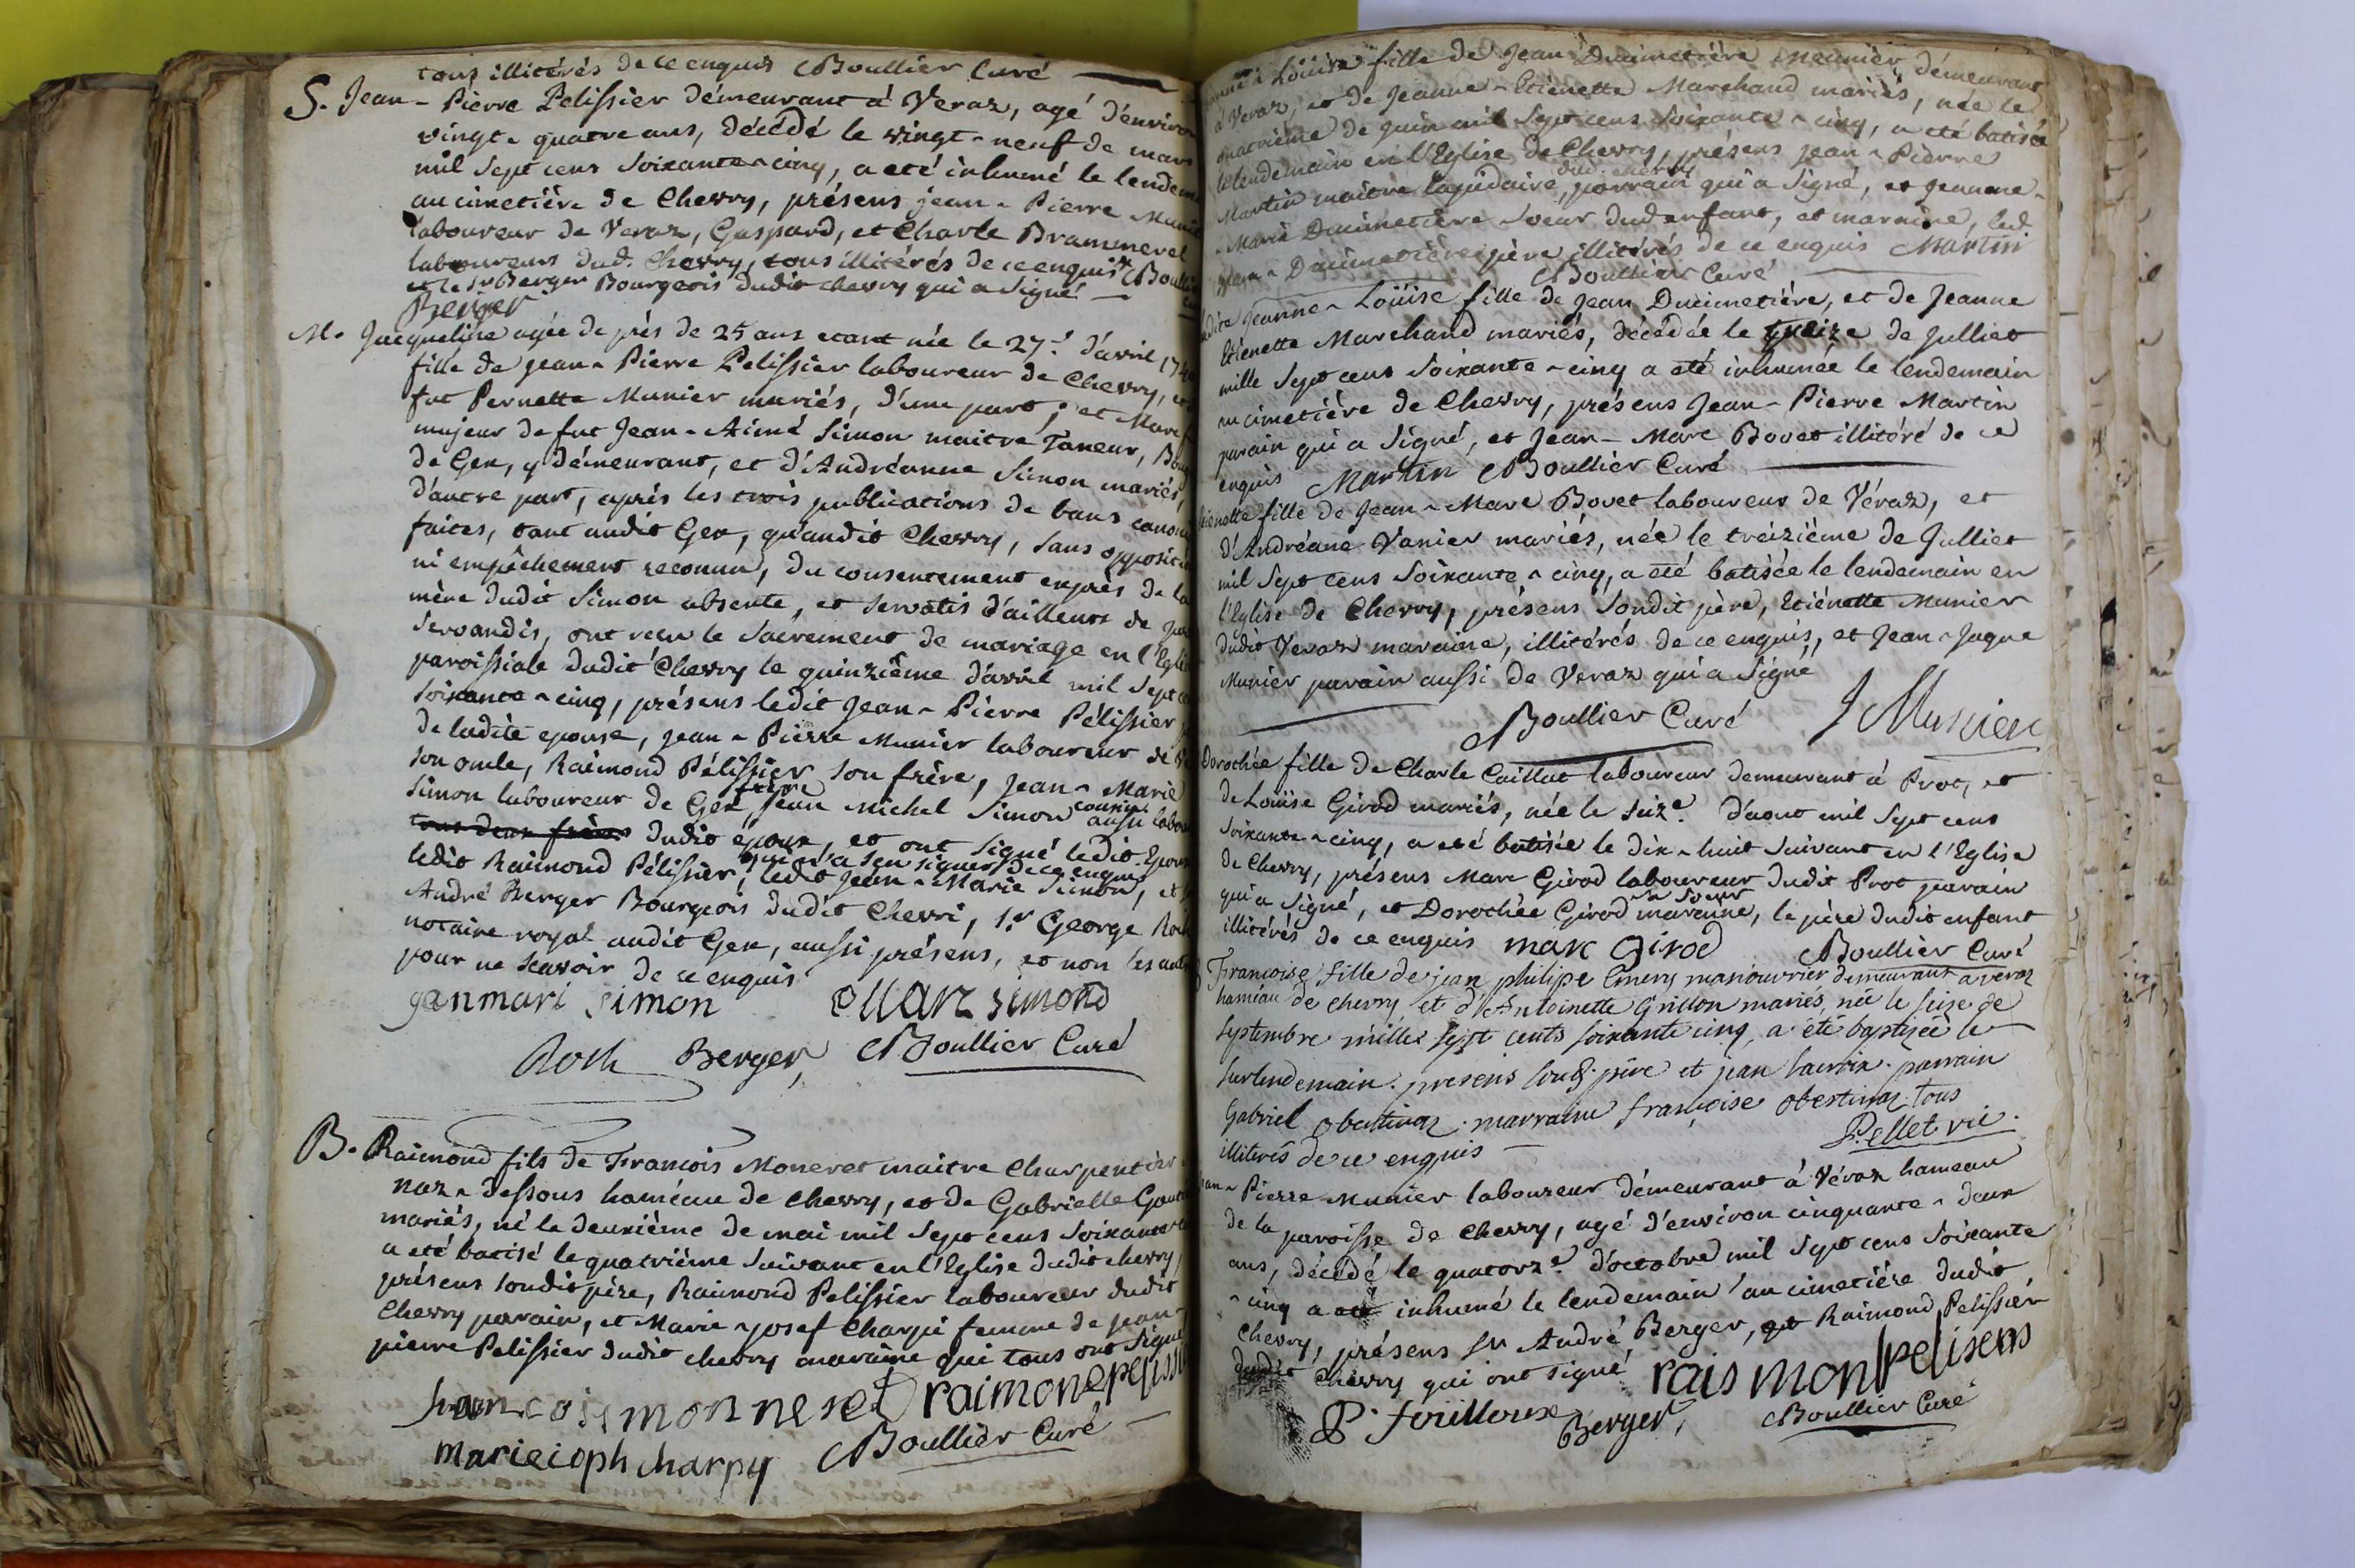 tous illitérés de ce enquis Boullier Curé
S. Jean-Pierre Pelissier démeurant à Veraz, agé d'environ
vingt-quatre ans, décédé le vingt-neuf de mars
mil sept cens soixante-cinq, a eté inhumé le lendem
au cimetière de Chevry, présens jean-Pierre Munie
laboureur de Veraz, Gaspard, et Charle Brammerel
laboureurs dud. Chevry, tous illiterés de ce enquis Boulli
et le Sr Berger Bourgeois dudit chevry qui a signé
Berger
M. Jacqueline agée de près de 25 ans etant née le 27.e d'avril 174
fille de jean-Pierre Pelissier laboureur de Chevry, et
fut Pernette Munier mariés, d'une part; et Marc f
majeur de fut Jean-Aimé Simon maitre Taneur, Bou
de Gex, y démeurant, et d'Andréanne Simon mariés,
d'autre part, après les trois publications de bans canoni
faites, tant audit Gex, qu'audit Chevry, sans oppositi
ni empêchement reconnu, du consentement exprès de la
mère dudit Simon absente, et servatis d'ailleurs de jure
servandis, ont reçu le Sacrement de mariage en l'Egli
paroissiale dudit Chevry le quinzième d'avril mil sept c
soixante-cinq, présens ledit Jean-Pierre Pélissier
de ladite epouse, jean-Pierre Munier laboureur de Ve
son oncle, Raimond Pélissier son frère, Jean-Marie
Simon laboureur de Gex, frère Jean Michel Simon cousin aussi labou
tous deux frères dudit époux, et ont signé ledit Epoux
ledit Raimond Pélissier, qui n'a sçu signer de ce enquis ledit Jean-Marie Simon, et
André Berger Bourgeois dudit Chevri, Sr George Roch
notaire royal audit Gex, aussi présens, et non les autr
pour ne scavoir de ce enquis
janmari simon Marz simond
Roch Berger Boullier Curé
B. Raimond fils de Francois Moneret maitre Charpentier
naz-dessous haméau de Chevry, et de Gabrielle Gau
mariés, né le deuxième de mai mil sept cens soixante
a eté batisé le quatrième suivant en l'Eglise dudit chevry,
présens sondit père, Raimond Pelissier laboureur dudit
Chevry parain, et Marie-josef Charpi femme de jean
pierre Pelissier dudit chevry maraine qui tous ont signé
francois monneret raimonepeliss
marieioph charpy Boullier Curé
Louise fille de Jean Ducimetière Meunier démeurant
à Veraz, et de Jeanne-Etiénette Marchand mariés, née le
quatrième de juin mil sept cens soixante-cinq, a eté batisée
le lendemain en l'Eglise de Chevry, présens jean-Pierre
Martin maitre lapidaire dud. chevry, parrain qui a signé, et Jeanne-
-Marie Ducimetière soeur dud enfant, et maraine, led.
Jean-Ducimetière père illitérés de ce enquis Martin
Boullier Curé
ladite Jeanne-Loüise fille de Jean Ducimetière, et de Jeanne
Etiénette Marchand mariés, décédée le treize de Julliet
mille sept cens soixante-cinq a eté inhumée le lendemain
au cimetière de Chevry, présens Jean-Pierre Martin
parain qui a signé, et Jean-Marc Bovet illitéré de ce
enquis Martin Boullier Curé
Etienette fille de Jean-Marc Bovet laboureur de Véraz, et
d'Andréane Vanier mariés, née le treizième de Julliet
mil sept cens soixante-cinq, a eté batisée le lendemain en
l'Eglise de Chevry, présens sondit père, Etiénette Munier
dudit Veraz maraine, illitérés de ce enquis, et Jean-Jaque
Munier parain aussi de Veraz qui a signé
Boullier Curé J Munier
Dorothée fille de Charle Caillat laboureur demeurant à Prot, et
de Loüise Girod mariés, née le seize d'aout mil sept cens
soixante-cinq, a eté batisée le dix-huit suivant en l'Eglise
de Chevry, présens Marc Girod laboureur dudit Prot parain
qui a signé, et Dorothée Girod sa soeur maraine, le père dudit enfant
illitérés de ce enquis marc Girod Boullier Curé
Francoise fille de jean philipe Emery manouvrier demeurant a veraz
hamiau de chevry et d'Antoinette Grillon mariés, née le seize de
Septembre mille sept cents soixante cinq, a été baptisée le
surlendemain. presens sond. père et jean parrain
Gabriel marraine françoise tous
illiterés de ce enquis Pellet vic.
Jean-Pierre Munier laboureur démeurant à Véraz hameau
de la paroisse de Chevry, agé d'environ cinquante-deux
ans, décédé le quatorze d'octobre mil sept cens soixante
-cinq a eté inhumé le lendemain au cimetière dudit
Chevry, présens Sr André Berger, et Raimond Pelissier
dudit Chevry qui ont signé rais mon pelisens
P. foüilloux Berger Boullier Curé